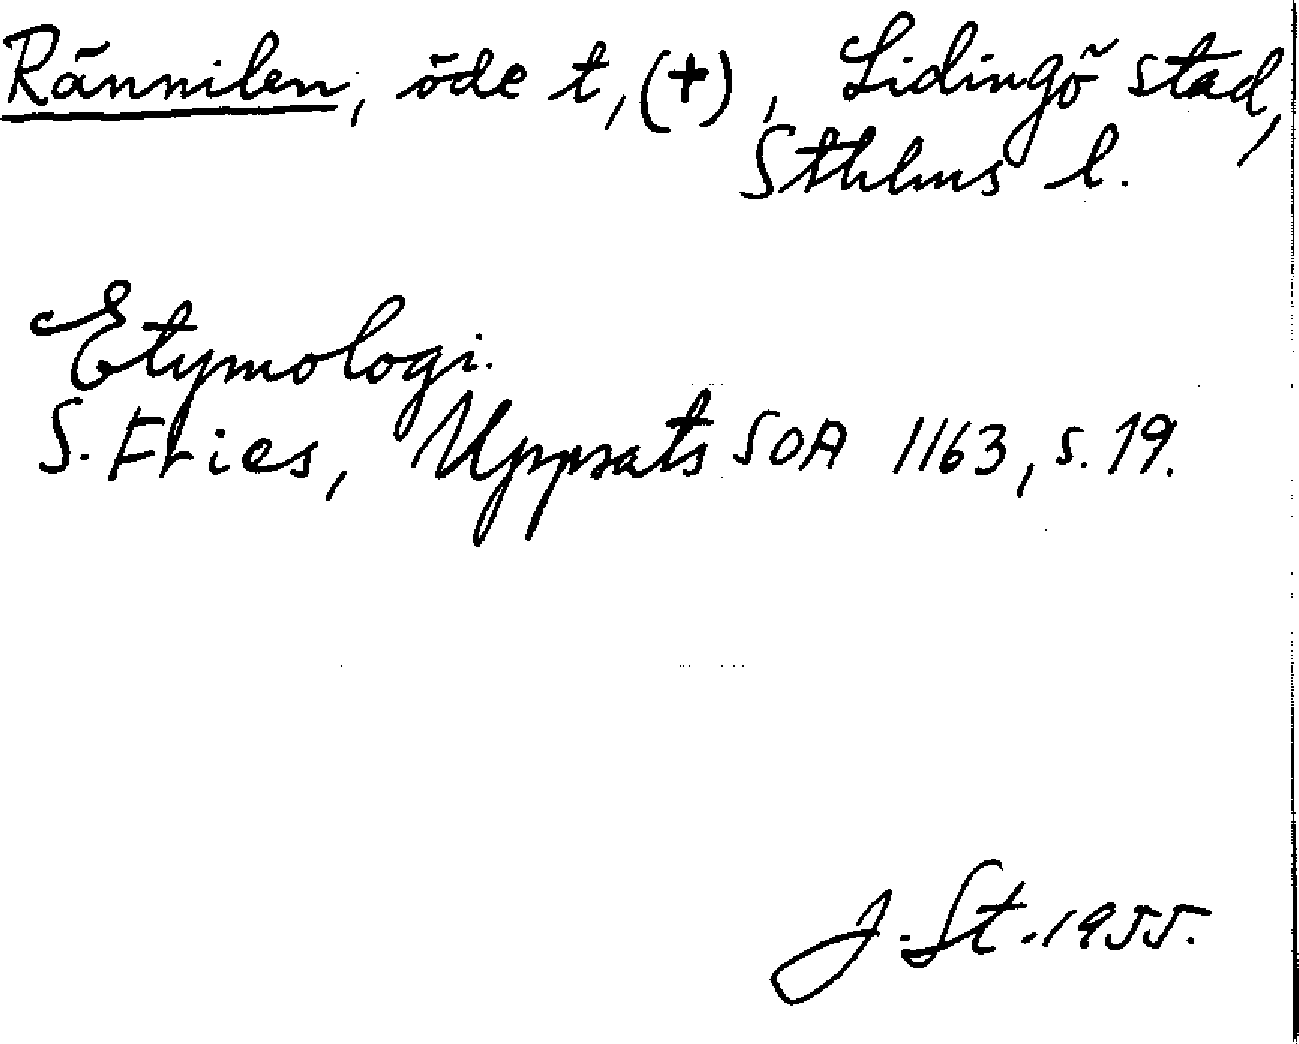 Rännilen, öde t, (+), Lidingö stad,
Sthlms l.
Etymologi.
S. Fries, Uppsats SOA 1163, s. 19.
J. St. 1955.